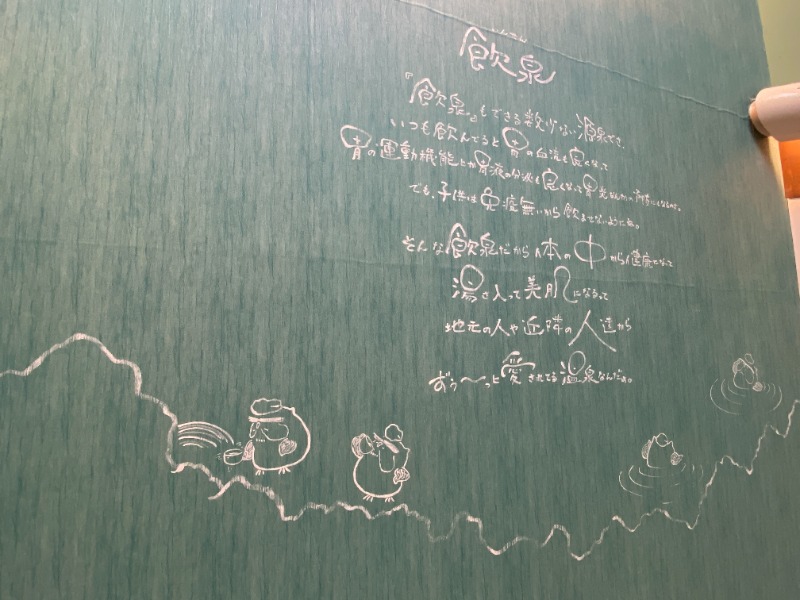 いんせん
飲泉
『飲泉』もできる数少ない温泉でさ、
いつも飲んでると胃の血流も良くなって
胃の運動機能とか胃液の分泌も良くなって胃炎なんかの
でも、子供は免疫無いから飲ませないようにね。
そんな飲泉だから体の中から健康になって
湯さ入って美肌になるって
地元の人や近隣の人達から
ずぅ〜っと愛されてる温泉なんだぁ。